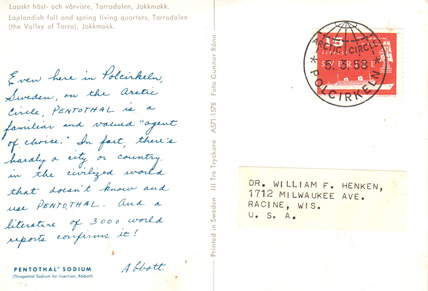 Lapskt höst- och vårviste, Tarradalen, Jokkmokk.
Laplandish fall and spring living quarters, Tarradalen
(the Valley of Tarra), Jokkmokk.
Even here in Polcirkeln,
Sweden, on the Arctic
Circle, PENTOTHAL is a
familiar and valued "agent
of choice." In fact, there's
hardly a city or country
in the civilized world
that doesn't know and
use PENTOTHAL. And a
literature of 3000 world
reports confirms it!
Abbott
PENTOTHAL® SODIUM
(Thiopental Sodium for Injection, Abbott)
Printed in Sweden III Tre Tryckare A571-1578 Foto Gunnar Rönn
ARCTIC CIRCLE
5. 3. 58
* POLCIRKELN
15
SVERIGE
DR. WILLIAM F. HENKEN,
1712 MILWAUKEE AVE.
RACINE, WIS.
U. S. A.